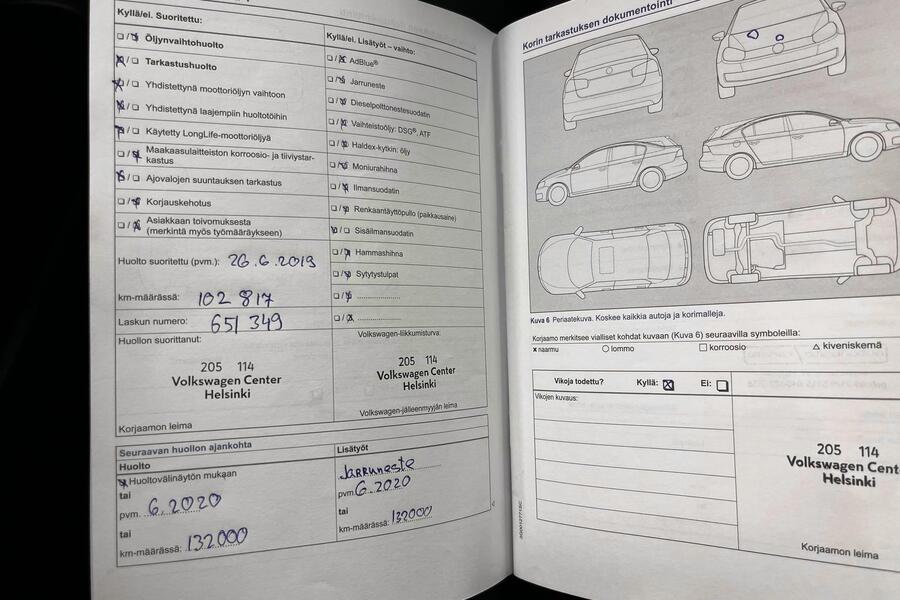 Kyllä/ei. Suoritettu:
Öljynvaihtohuolto
Tarkastushuolto
Yhdistettynä moottoriöljyn vaihtoon
Yhdistettynä laajempiin huoltotöihin
Käytetty LongLife-moottoriöljyä
Maakaasulaitteiston korroosio- ja tiiviystar-
kastus
Ajovalojen suuntauksen tarkastus
Korjauskehotus
Asiakkaan toivomuksesta
(merkintä myös työmääräykseen)
Huolto suoritettu (pvm.): 26.6.2019
km-määrässä: 102 817
Laskun numero: 651 349
Huollon suorittanut:
205 114
Volkswagen Center
Helsinki
Korjaamon leima
Kyllä/ei. Lisätyöt – vaihto:
AdBlue®
Jarruneste
Dieselpolttonestesuodatin
Vaihteistoöljy: DSG®, ATF
Haldex-kytkin: öljy
Moniurahihna
Ilmansuodatin
Renkaantäyttöpullo (paikkausaine)
Sisäilmansuodatin
Hammashihna
Sytytystulpat
Volkswagen-liikkumisturva:
205 114
Volkswagen Center
Helsinki
Volkswagen-jälleenmyyjän leima
Seuraavan huollon ajankohta
Huolto
Huoltovälinäytön mukaan
tai
pvm. 6.2020
tai
km-määrässä: 132000
Lisätyöt
Jarruneste
pvm. 6.2020
tai
km-määrässä: 132000
Korin tarkastuksen dokumentointi
Kuva 6 Periaatekuva. Koskee kaikkia autoja ja korimalleja.
Korjaamo merkitsee vialliset kohdat kuvaan (Kuva 6) seuraavilla symboleilla:
x naarmu O lommo □ korroosio △ kiveniskemä
Vikoja todettu? Kyllä: ☒ Ei: □
Vikojen kuvaus:
205 114
Volkswagen Cent
Helsinki
Korjaamon leima